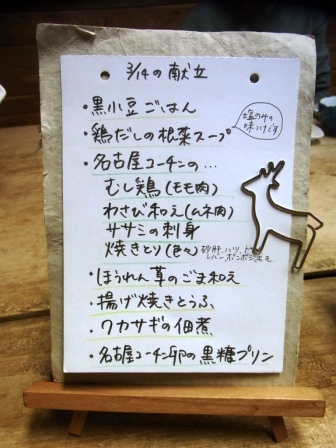 3/14の献立
・黒小豆ごはん
・鶏だしの根菜スープ
塩のみの
味つけです
・名古屋コーチンの…
むし鶏(モモ肉)
わさび和え(ムネ肉)
ササミの刺身
焼きとり(色々)
砂肝、ハツ、
レバー、ボンボン、モモ
・ほうれん草のごま和え
・揚げ焼きとうふ
・ワカサギの佃煮
・名古屋コーチン卵の黒糖プリン